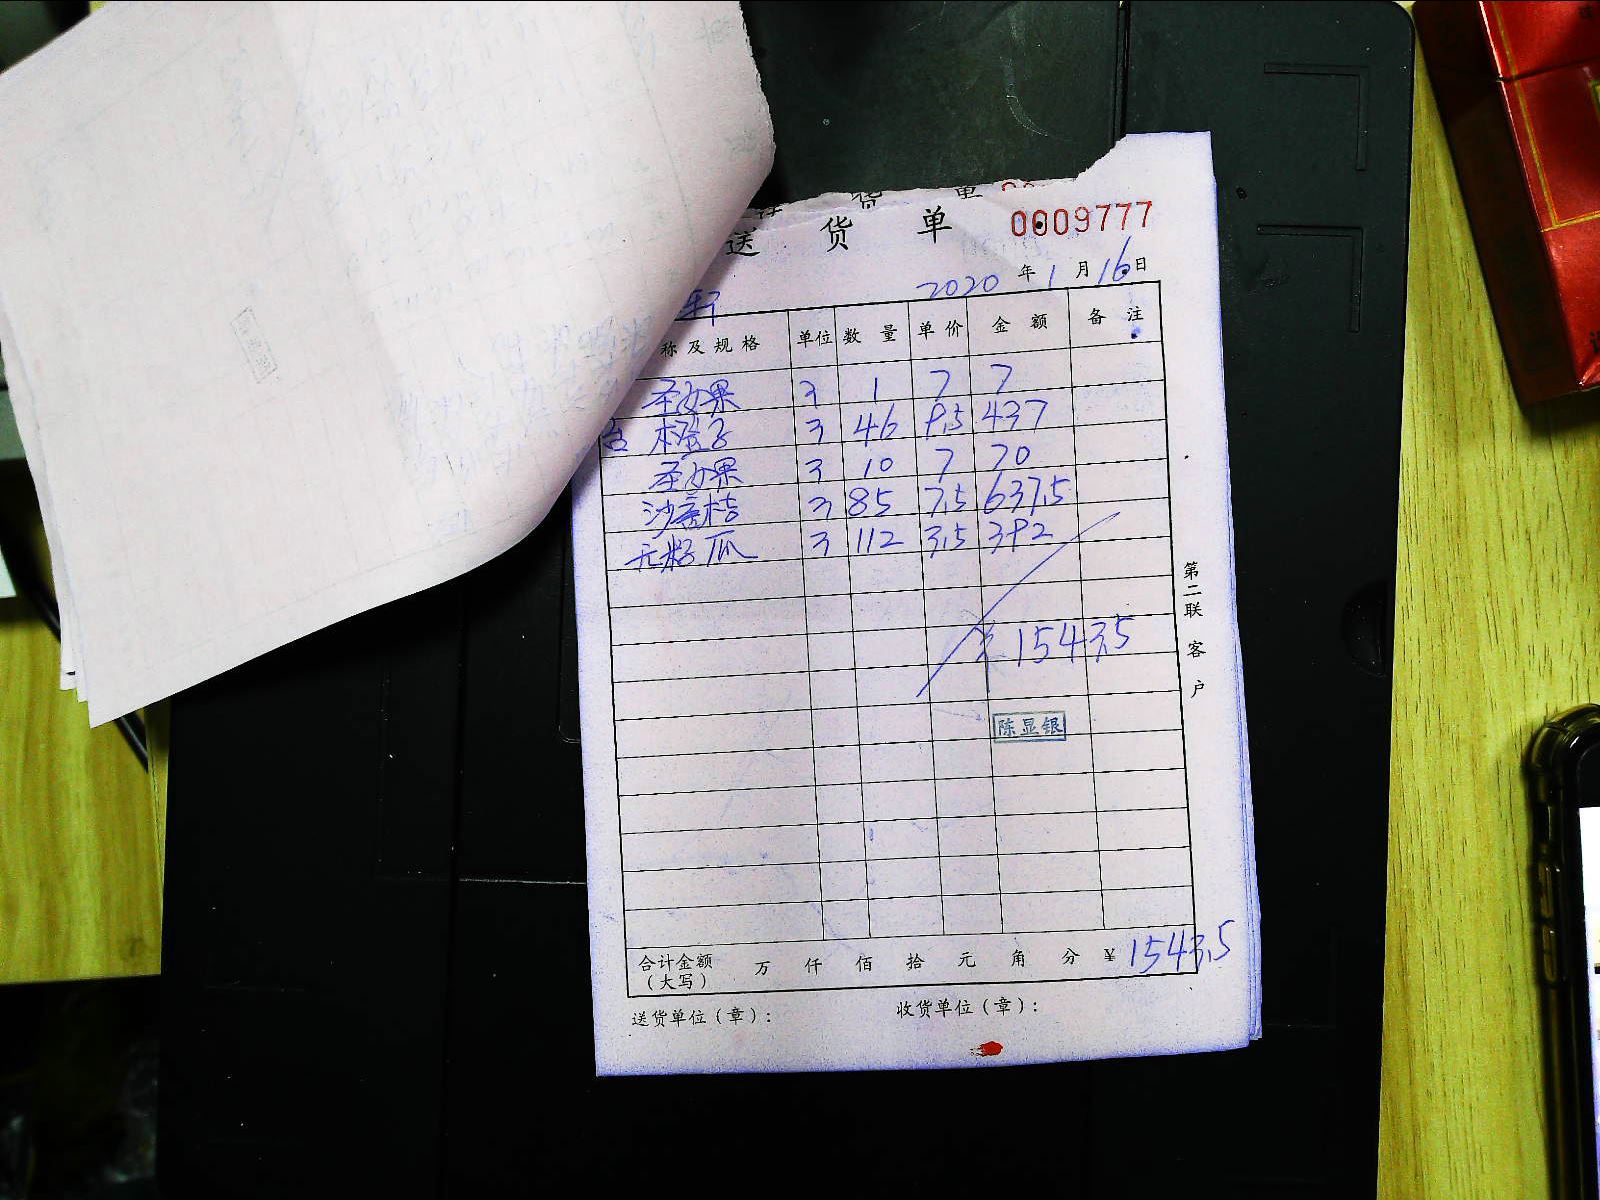 送 货 单 0009777
2020 年 1 月 16 日
轩
称及规格 单位 数量 单价 金额 备注
圣女果 3 1 7 7
橙子 3 46 9.5 437
圣女果 3 10 7 70
沙糖桔 3 85 7.5 637.5
无籽瓜 3 112 3.5 392
1543.5
陈显银
合计金额（大写） 万 仟 佰 拾 元 角 分 ¥ 1543.5
送货单位（章）： 收货单位（章）：
第二联 客户